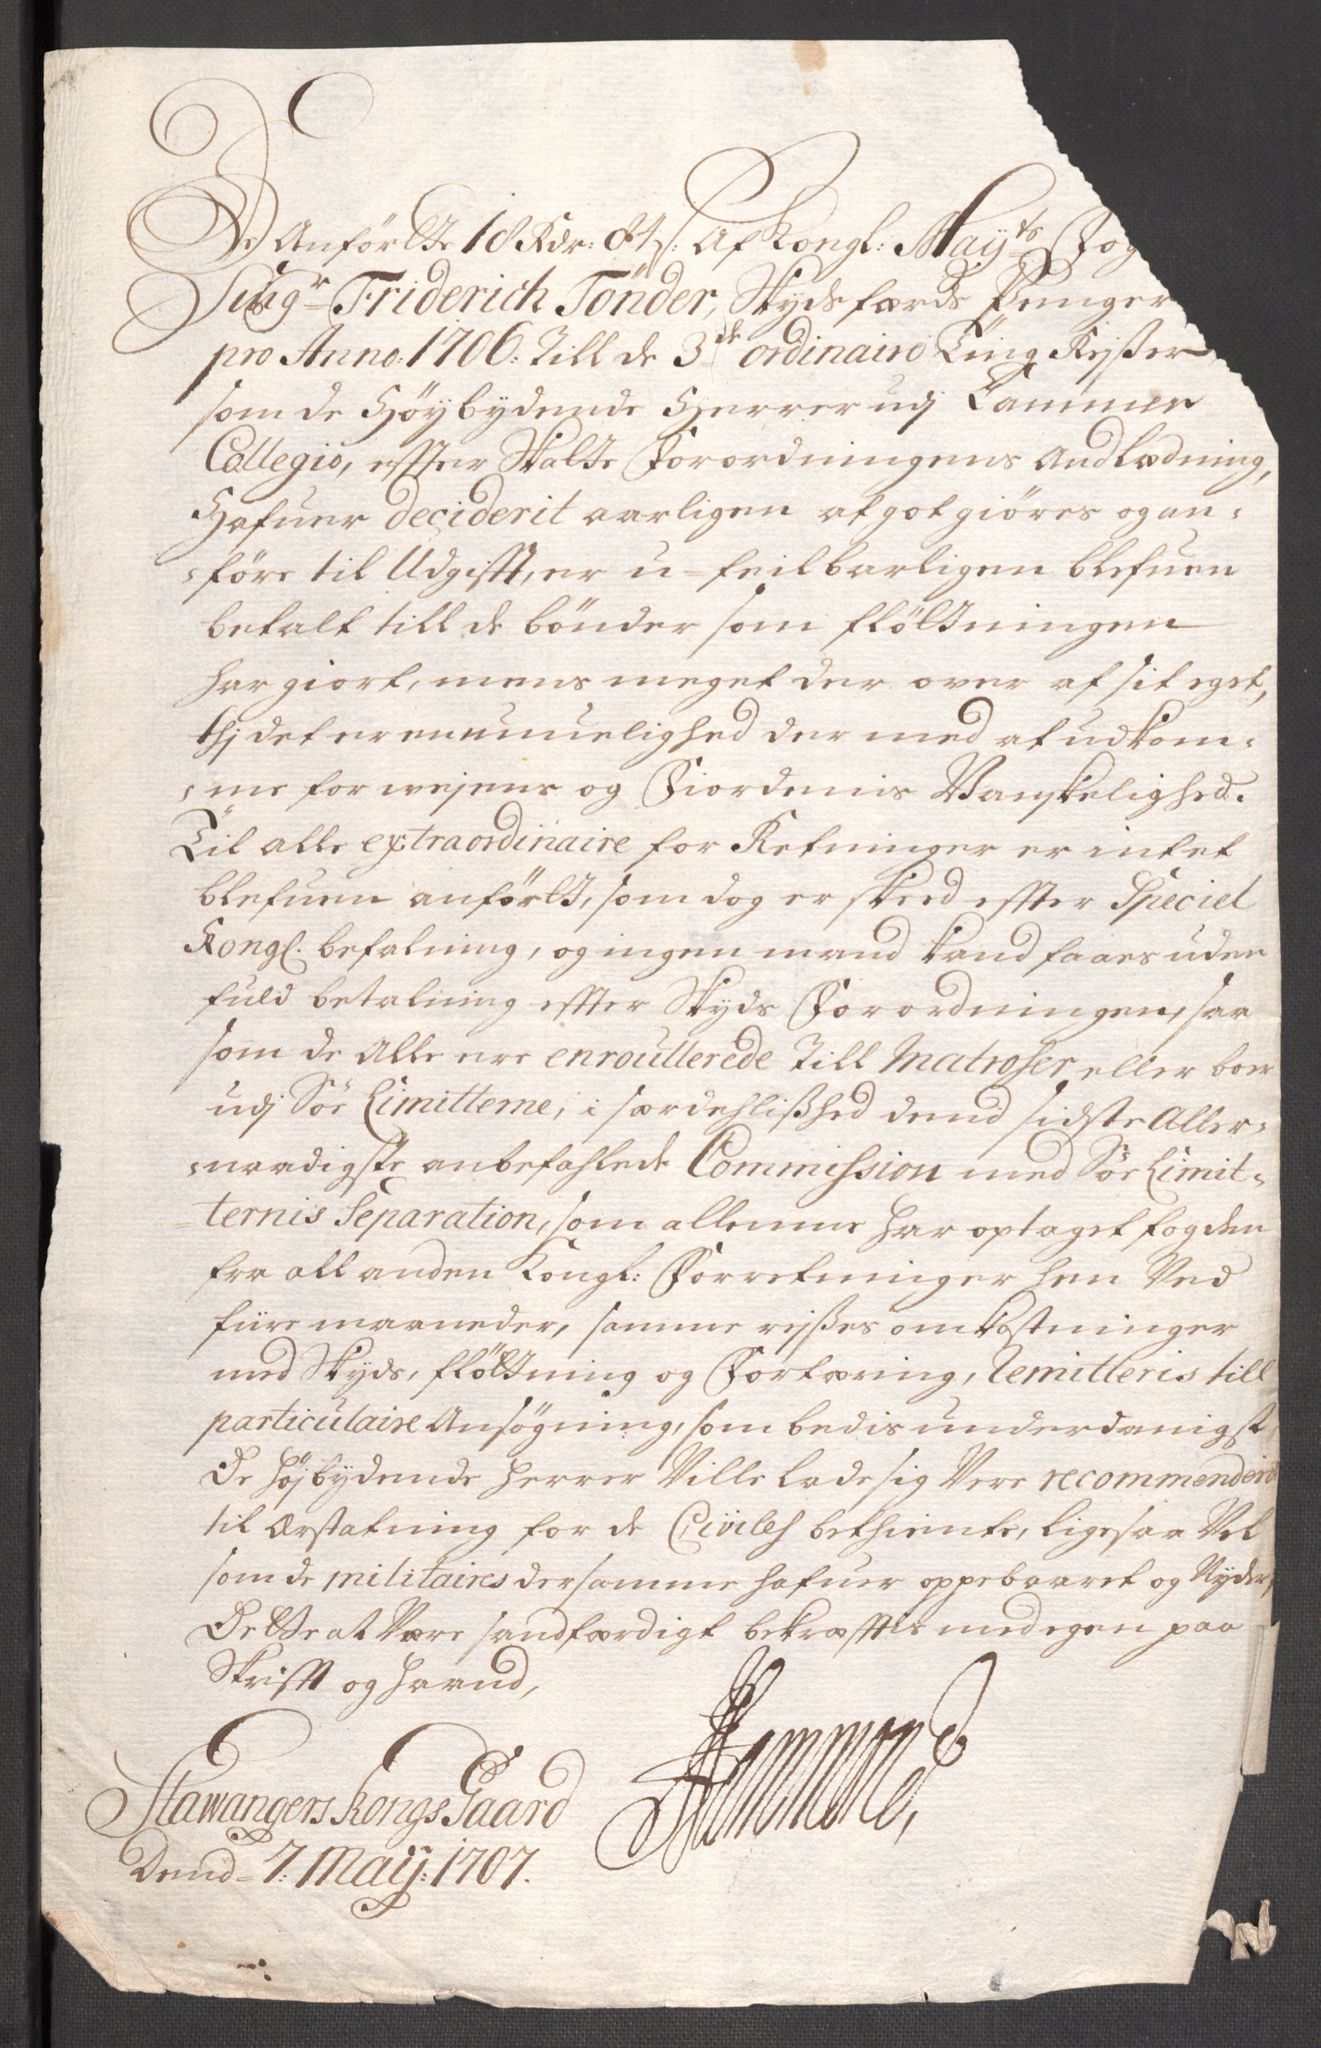 De Anførte 18 Rdr: 84 s: Af Kongl: Mayts Fog
Sing.r Friderich Tönder, Skydsfærds Penger
pro Anno: 1706: Till de 3de ordinaire Ting Reysßer
som de Høybydende Herrer udj Cammer
Collegio, effter Skatte Forordningens Andledning,
Hafuer deciderit aarligen at gotgiøres og an-
-føre til Udgifft, er u-feilbarligen blefuen
betalt till de bønder som fløttningen
har giort, mens meget der over af sit eget,
thj det er en umuelighed der med at udkom-
-me for wejens og Fiordenis Vanskelighed.
Til alle extraordinaire for Retninger er intet
blefuen anført, som dog er skeed effter Speciel
Kongl. befalning, og ingen mand kand faaes uden
fuld betalning effter Skyds Forordningen, saa
som de Alle ere enroullerede Till Matroser eller boer
udj Söe Limitterne, i særdehlißhed dend sidste Aller-
-naadigste anbefahlede Commission med Söe Limit-
-ternis Separation, som allenme har optaget fogden
fra all anden Kongl: Forretninger hen Ved
fiire maaneder, samme reyßes omkostninger
med Skyds, fløttning og Fortæring, Remitteris till
particulaire Ansøgning, som bedis underdanigst,
De Højbydende Herrer Ville lade sig Vere recommenderet
til Ærstatning for de Civiles bethiente, ligesaa Vel
som de militaires der samme hafuer oppebaaret og Nyder,
Dette at Være sandfærdigt bekræfftis med egen paa
Skrifft og haand,
Stawangers Kongs Gaard
Dend 7: Maij: 1707.